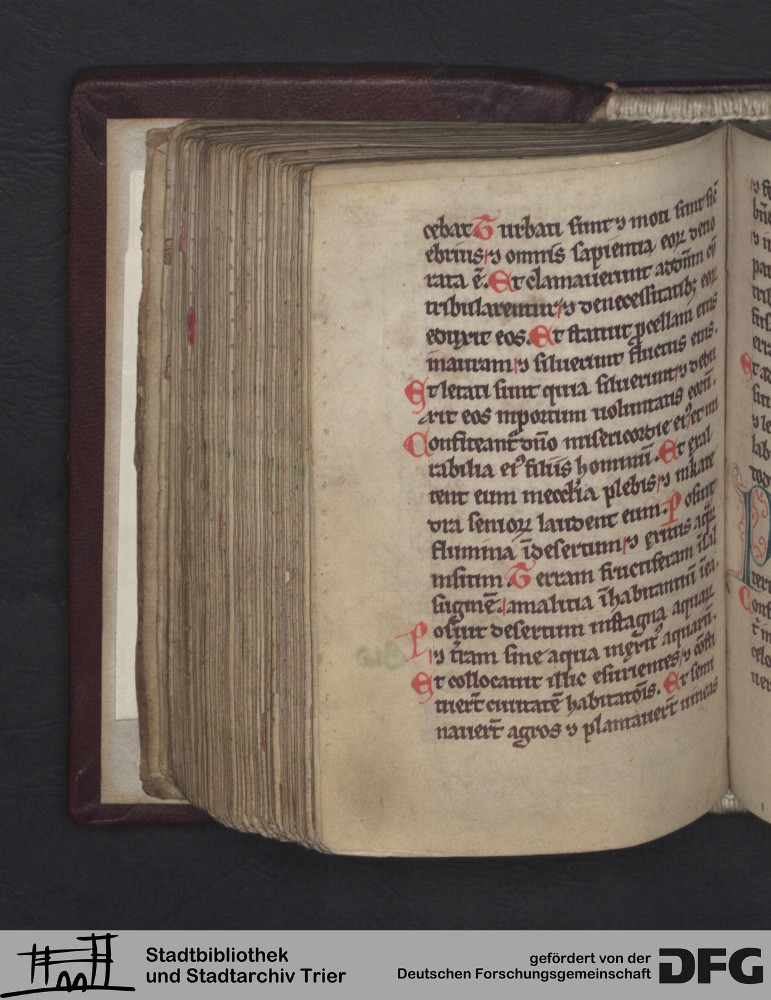 cebat Turbati sunt ⁊ moti sunt sic̄
ebrius ⁊ omnis sapientia eoꝝ deuo
rata ē. Et clamauerunt ad dn̄m cū
tribularentur ⁊ de necessitatibꝫ eoꝝ
eduxit eos. Et statuit ꝓcellam eius
in auram ⁊ siluerunt fluctus eius.
Et letati sunt quia siluerunt ⁊ dedu
xit eos in portum uoluntatis eorū.
Confiteant᷑ dn̄o misericordie eiꝰ et mi
rabilia eiꝰ filiis hominū. Et exal
tent eum in ecclīa plebis ⁊ in kate
dra senioꝝ laudent eum. Posuit
flumina ī desertum ⁊ exitus aqꝝ
in sitim Terram fructiferam ī sal
suginē a malitia īhabitantiū ī ea.
Posuit desertum in stagna aquaꝝ
⁊ t̄ram sine aqua in exitꝰ aquarū.
Et collocauit illic esurientes ⁊ cōsti
tuert̄ ciuitatē habitatōis. Et semi
nauert̄ agros ⁊ plantauert̄ uineas
Stadtbibliothek
und Stadtarchiv Trier
gefördert von der
Deutschen Forschungsgemeinschaft
DFG